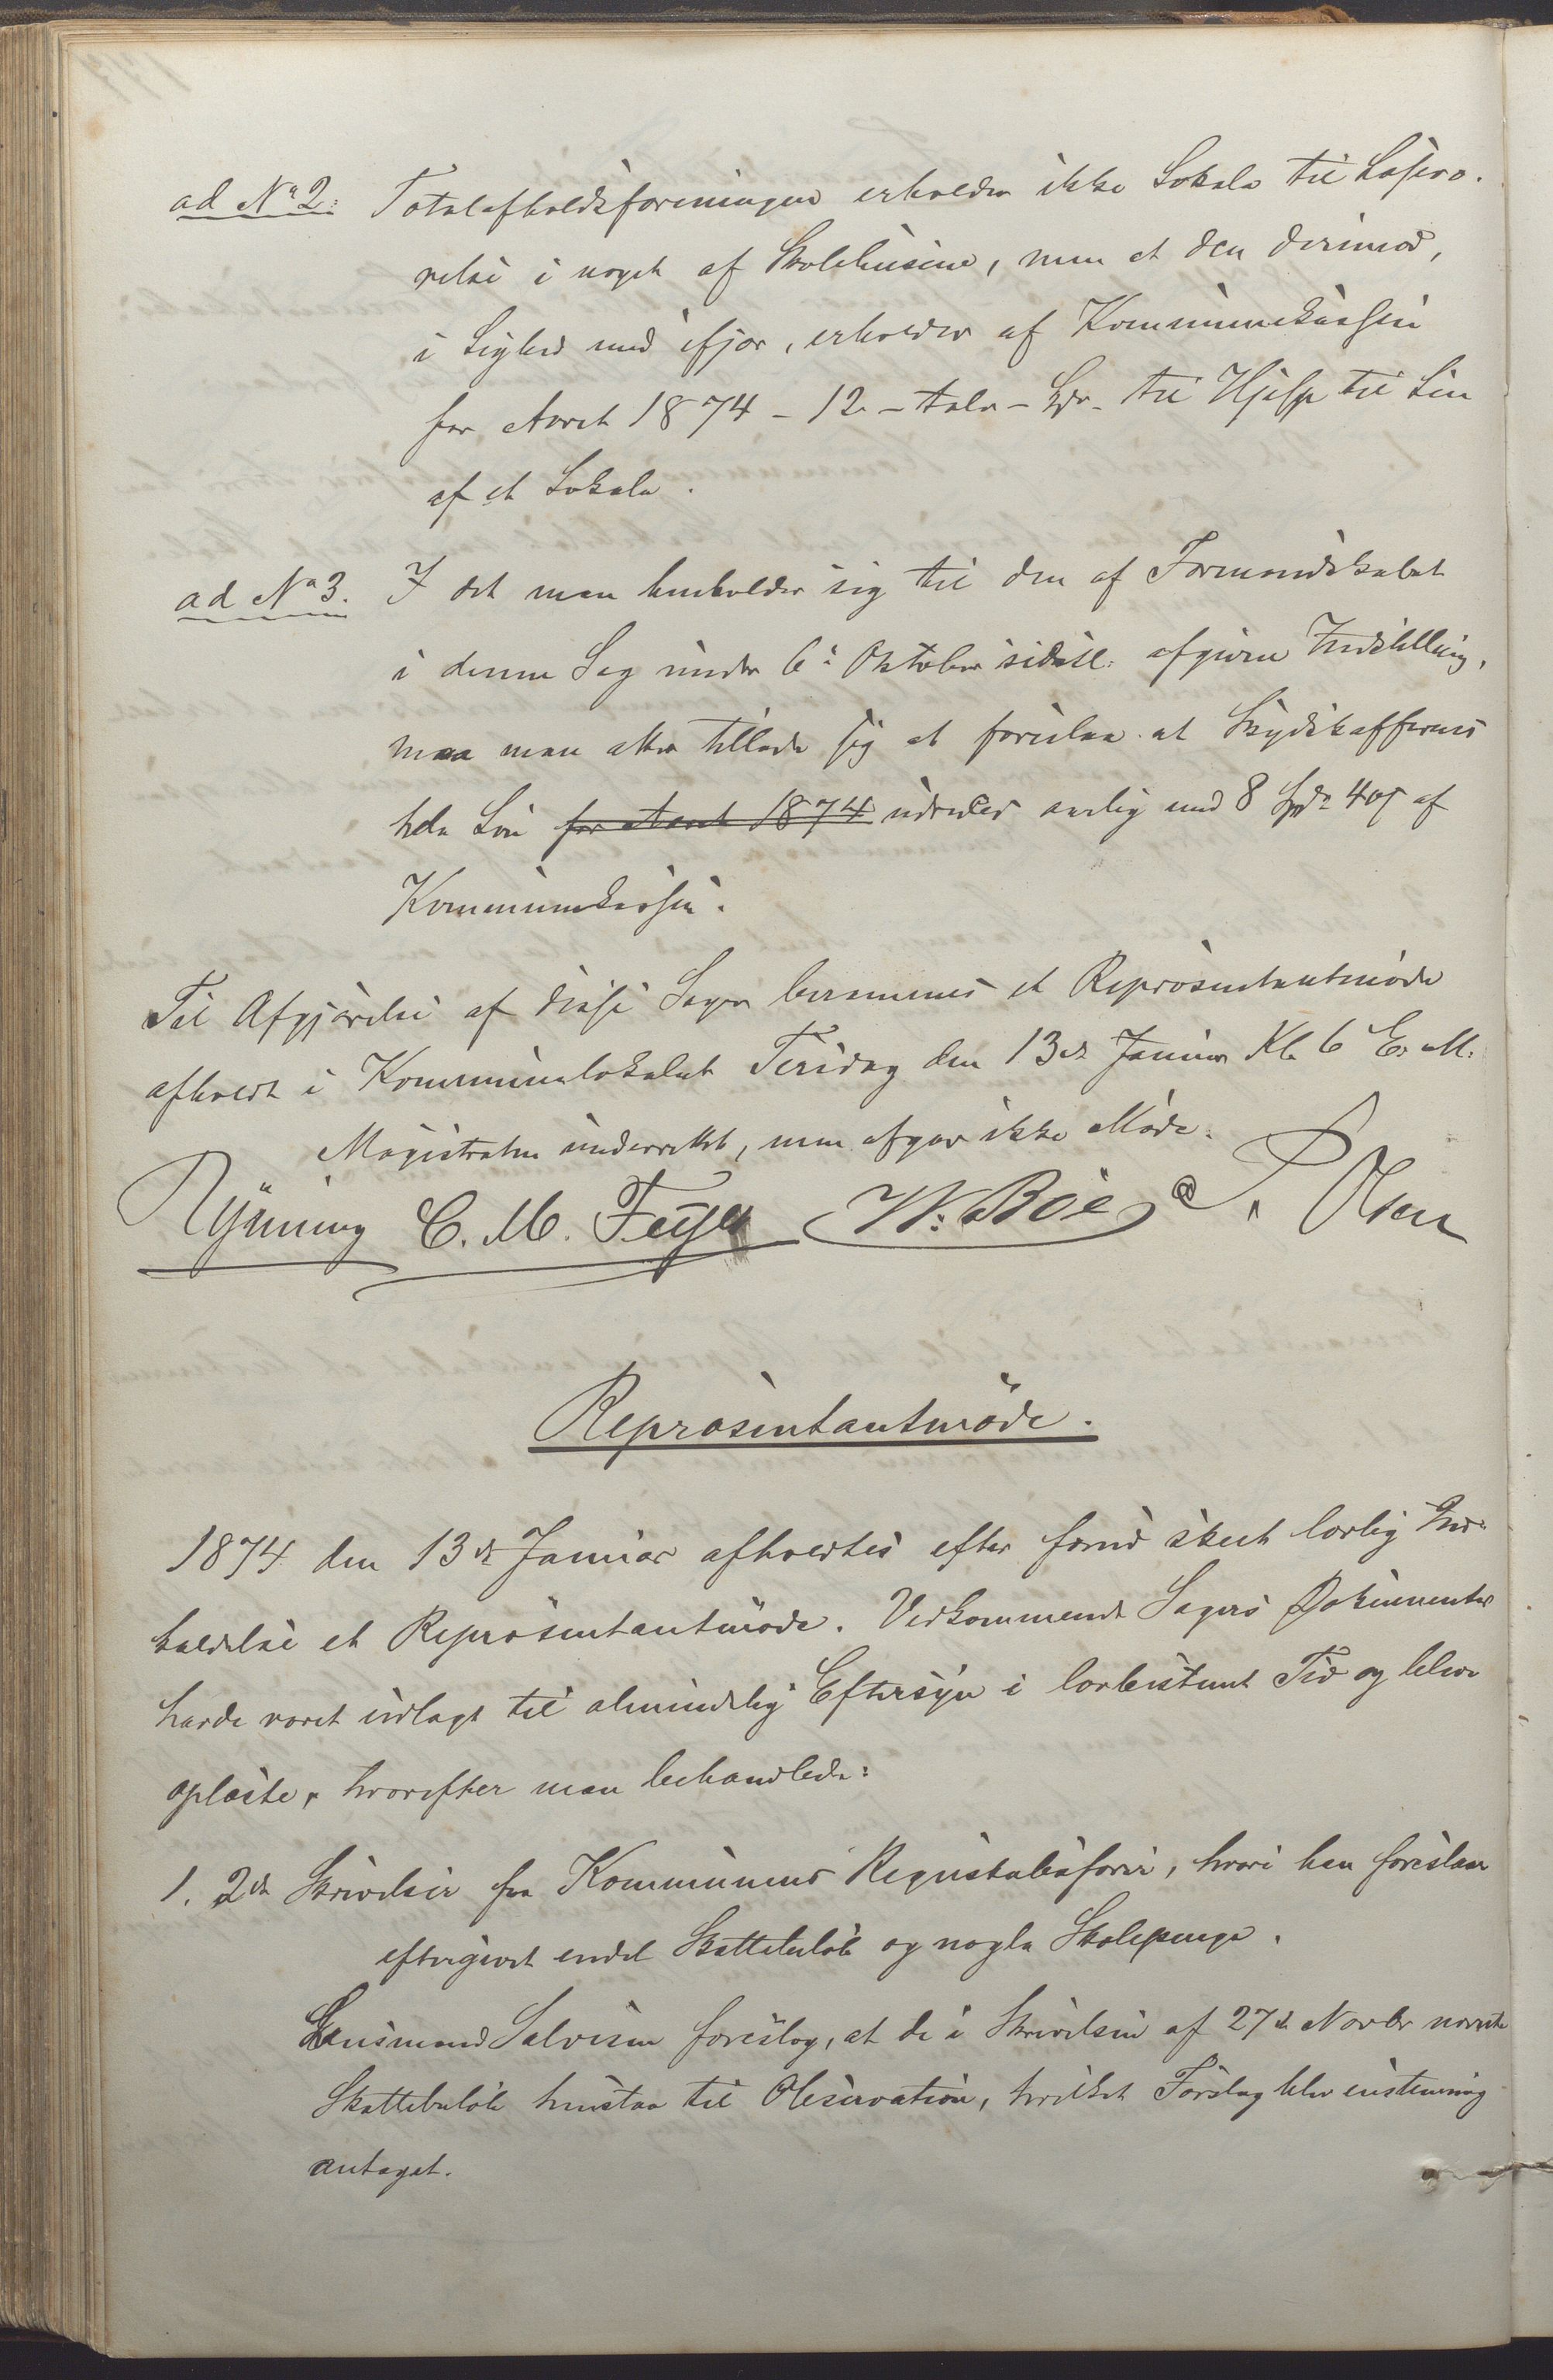 ad No 2. Totalafholdsforeningen erholder ikke Lokale til Lospro-
relse i noget af Skolehusene, men at den derimod,
i Lighed med ifjor, erholder af Kommunekassen
for Aaret 1874 - 12 - tolv - Spd. til Hjelp til Leie
af et Lokale.
ad No 3. I det man henholder sig til den af Formandskabet
i denne Sag under 6te Oktober sidstl. afgivne Indstilling,
maa man atter tillade sig at foreslaa at Skydsskafferens
hele Løn for Aaret 1874 udredes aarlig med 8 Spd. 40 s af
Kommunekassen.
Til Afgjørelse af disse Sager berammes et Repræsentantmøde
afholdt i Kommunelokalet Tirsdag den 13de Januar Kl. 6 E. M.
Magistraten underrettet, men afgav ikke Møde.
Rynning C. M. Feyer W. Böe P. Olsen
Repræsentantmøde.
1874 den 13de Januar afholdtes efter forud skeet lovlig Ind-
kaldelse et Repræsentantmøde. Vedkommende Sagers Dokumenter
havde været udlagt til almindelig Eftersyn i lovbestemt Tid og bleve
oplæste, hvorefter man behandlede:
1. 2de Skrivelser fra Kommunens Regnskabsfører, hvori han foreslaar
eftergivet endel Skattebeløb og nogle Skolepenge.
Lensmand Salvesen foreslog, at de i Skrivelsen af 27de Novbr nævnte
Skattebeløb henstaa til Observation, hvilket Forslag blev enstemmig
antaget.